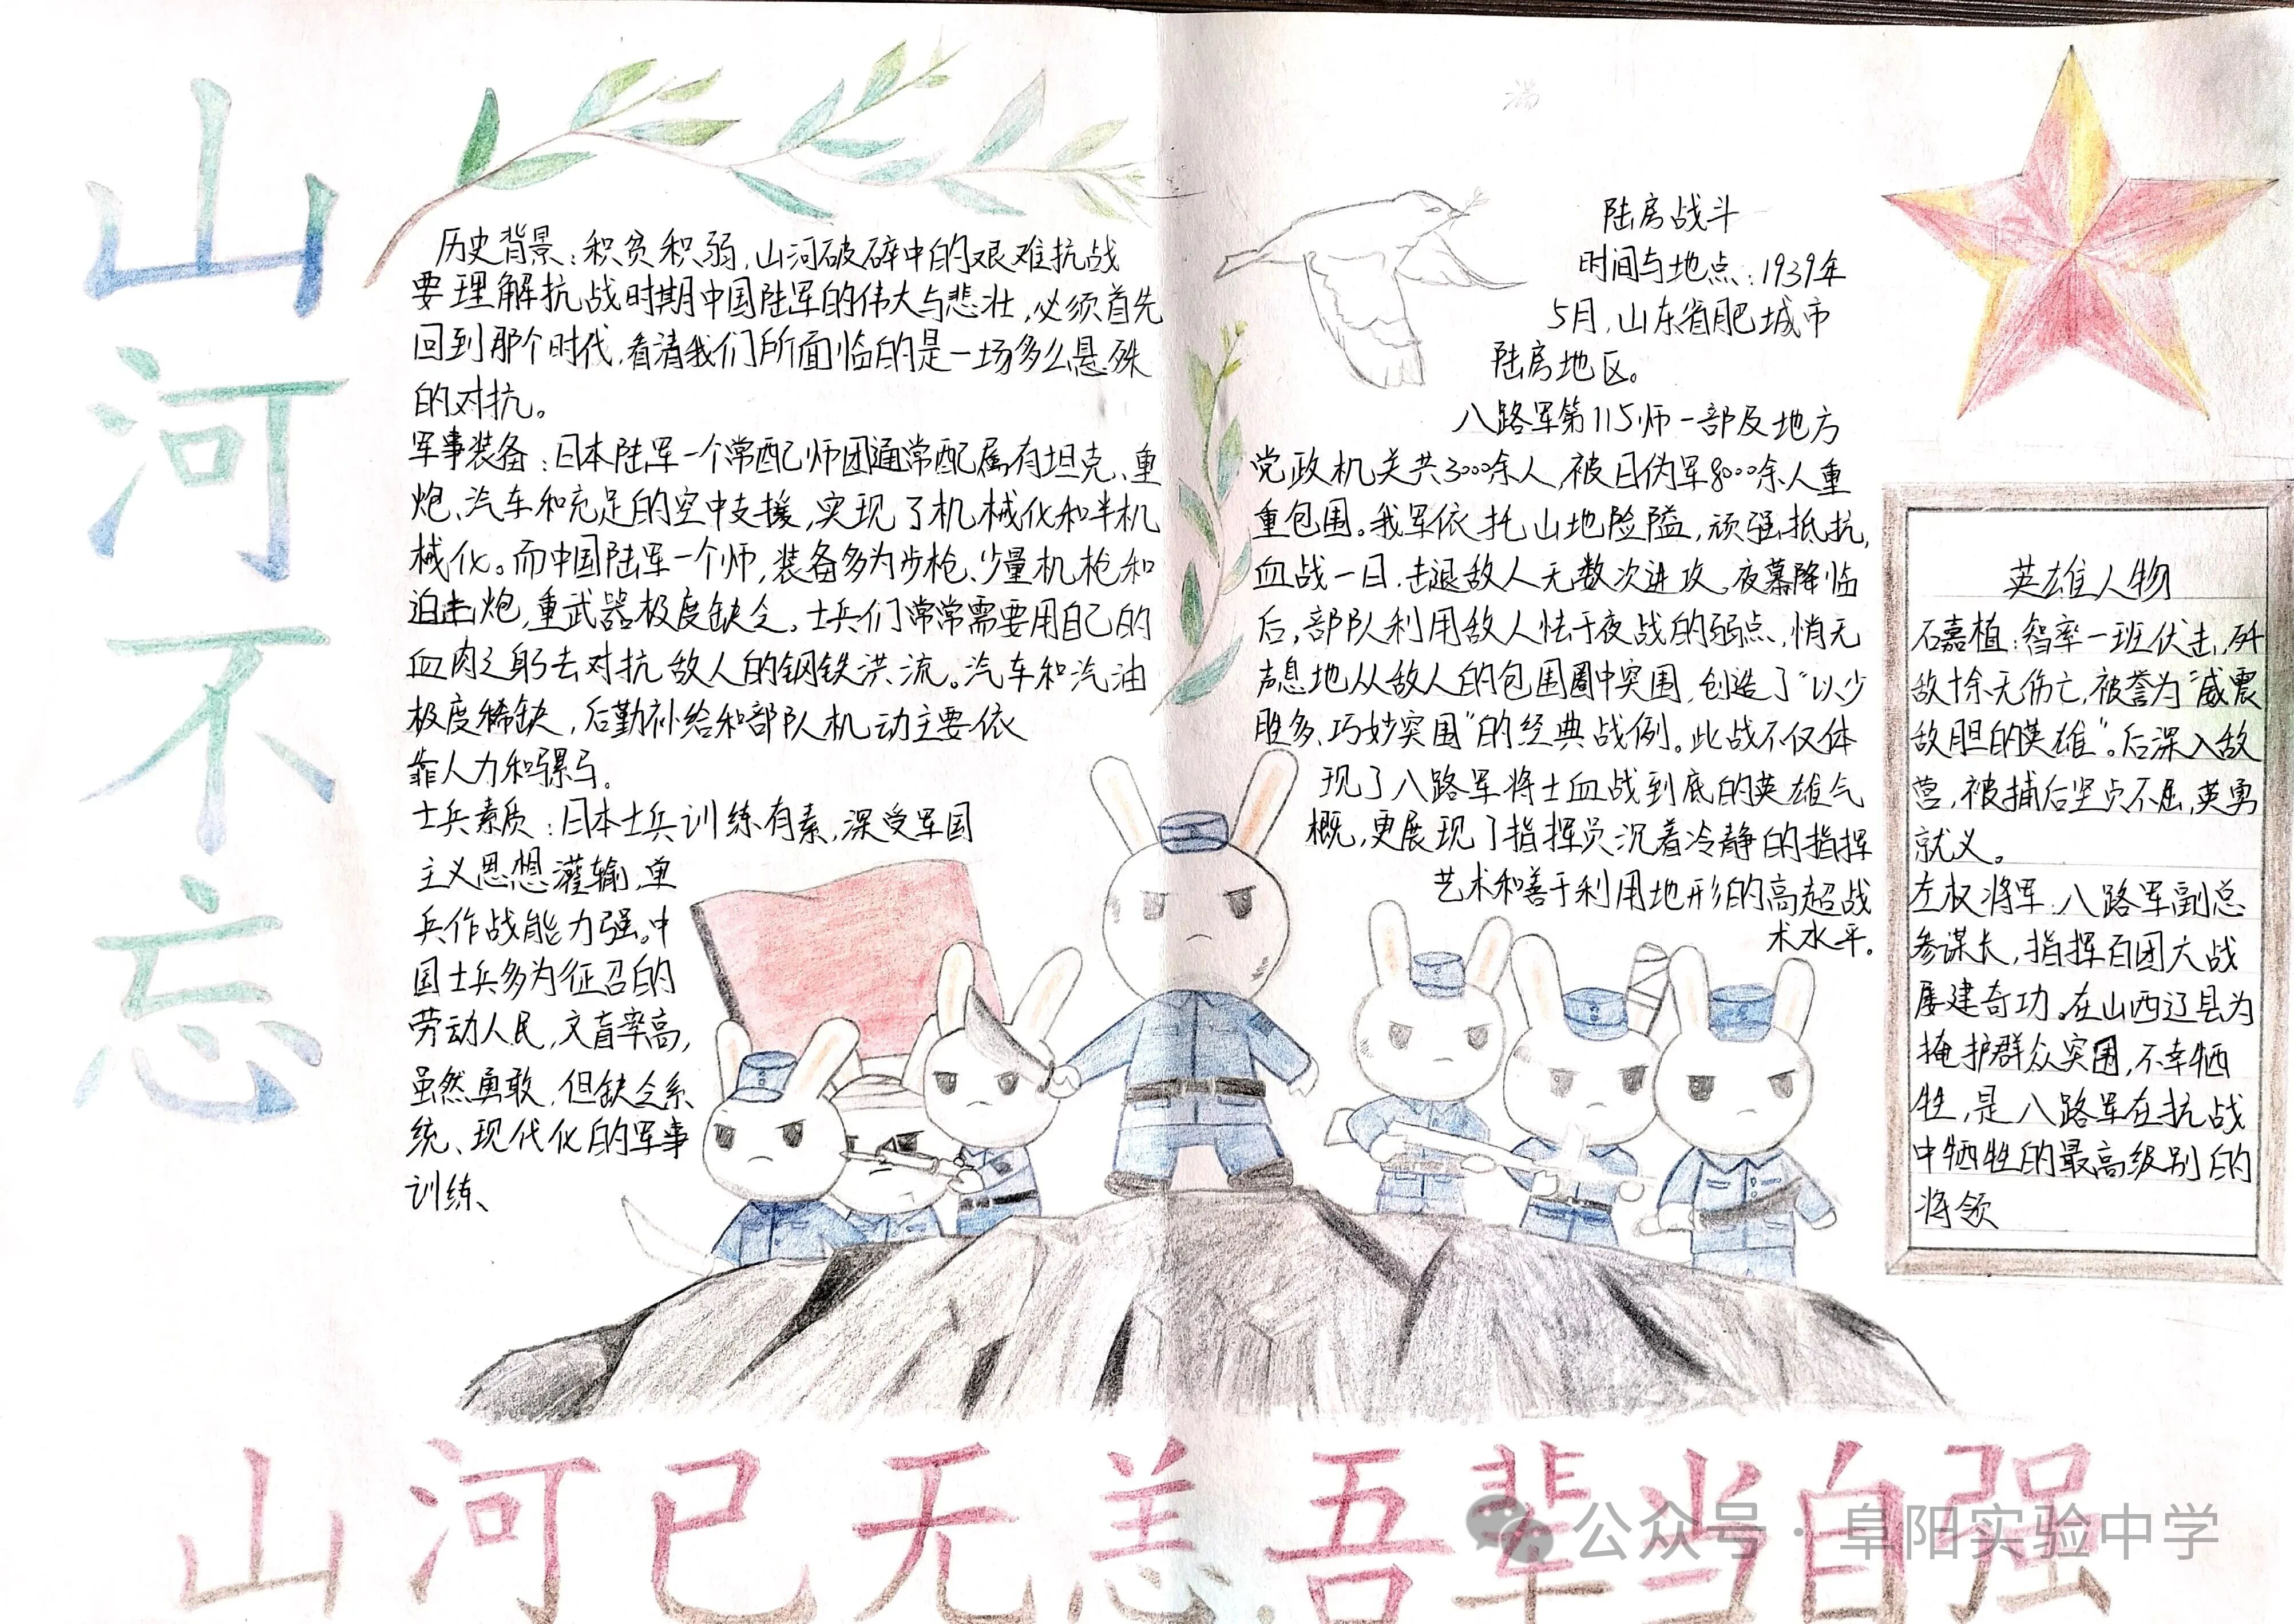 山河不忘
历史背景：积贫积弱，山河破碎中的艰难抗战
要理解抗战时期中国陆军的伟大与悲壮，必须首先
回到那个时代，看清我们所面临的是一场多么悬殊
的对抗。
军事装备：日本陆军一个常配师团通常配属有坦克、重
炮、汽车和充足的空中支援，实现了机械化和半机
械化。而中国陆军一个师，装备多为步枪、少量机枪和
迫击炮，重武器极度缺乏。士兵们常常需要用自己的
血肉之躯去对抗敌人的钢铁洪流。汽车和汽油
极度稀缺，后勤补给和部队机动主要依
靠人力和骡马。
士兵素质：日本士兵训练有素，深受军国
主义思想灌输，单
兵作战能力强。中
国士兵多为征召的
劳动人民，文盲率高，
虽然勇敢，但缺乏系
统、现代化的军事
训练、
陆房战斗
时间与地点：1939年
5月，山东省肥城市
陆房地区。
八路军第115师一部及地方
党政机关共3000余人，被日伪军8000余人重
重包围。我军依托山地险隘，顽强抵抗，
血战一日，击退敌人无数次进攻。夜幕降临
后，部队利用敌人怯于夜战的弱点，悄无
声息地从敌人的包围圈中突围，创造了“以少
胜多、巧妙突围”的经典战例。此战不仅体
现了八路军将士血战到底的英雄气
概，更展现了指挥员沉着冷静的指挥
艺术和善于利用地形的高超战
术水平。
英雄人物
石嘉植：智率一班伏击，歼
敌十余无伤亡，被誉为“威震
敌胆的英雄”。后深入敌
营，被捕后坚贞不屈，英勇
就义。
左权将军：八路军副总
参谋长，指挥百团大战
屡建奇功。在山西辽县为
掩护群众突围，不幸牺
牲，是八路军在抗战
中牺牲的最高级别的
将领
山河已无恙 吾辈当自强
公众号·阜阳实验中学